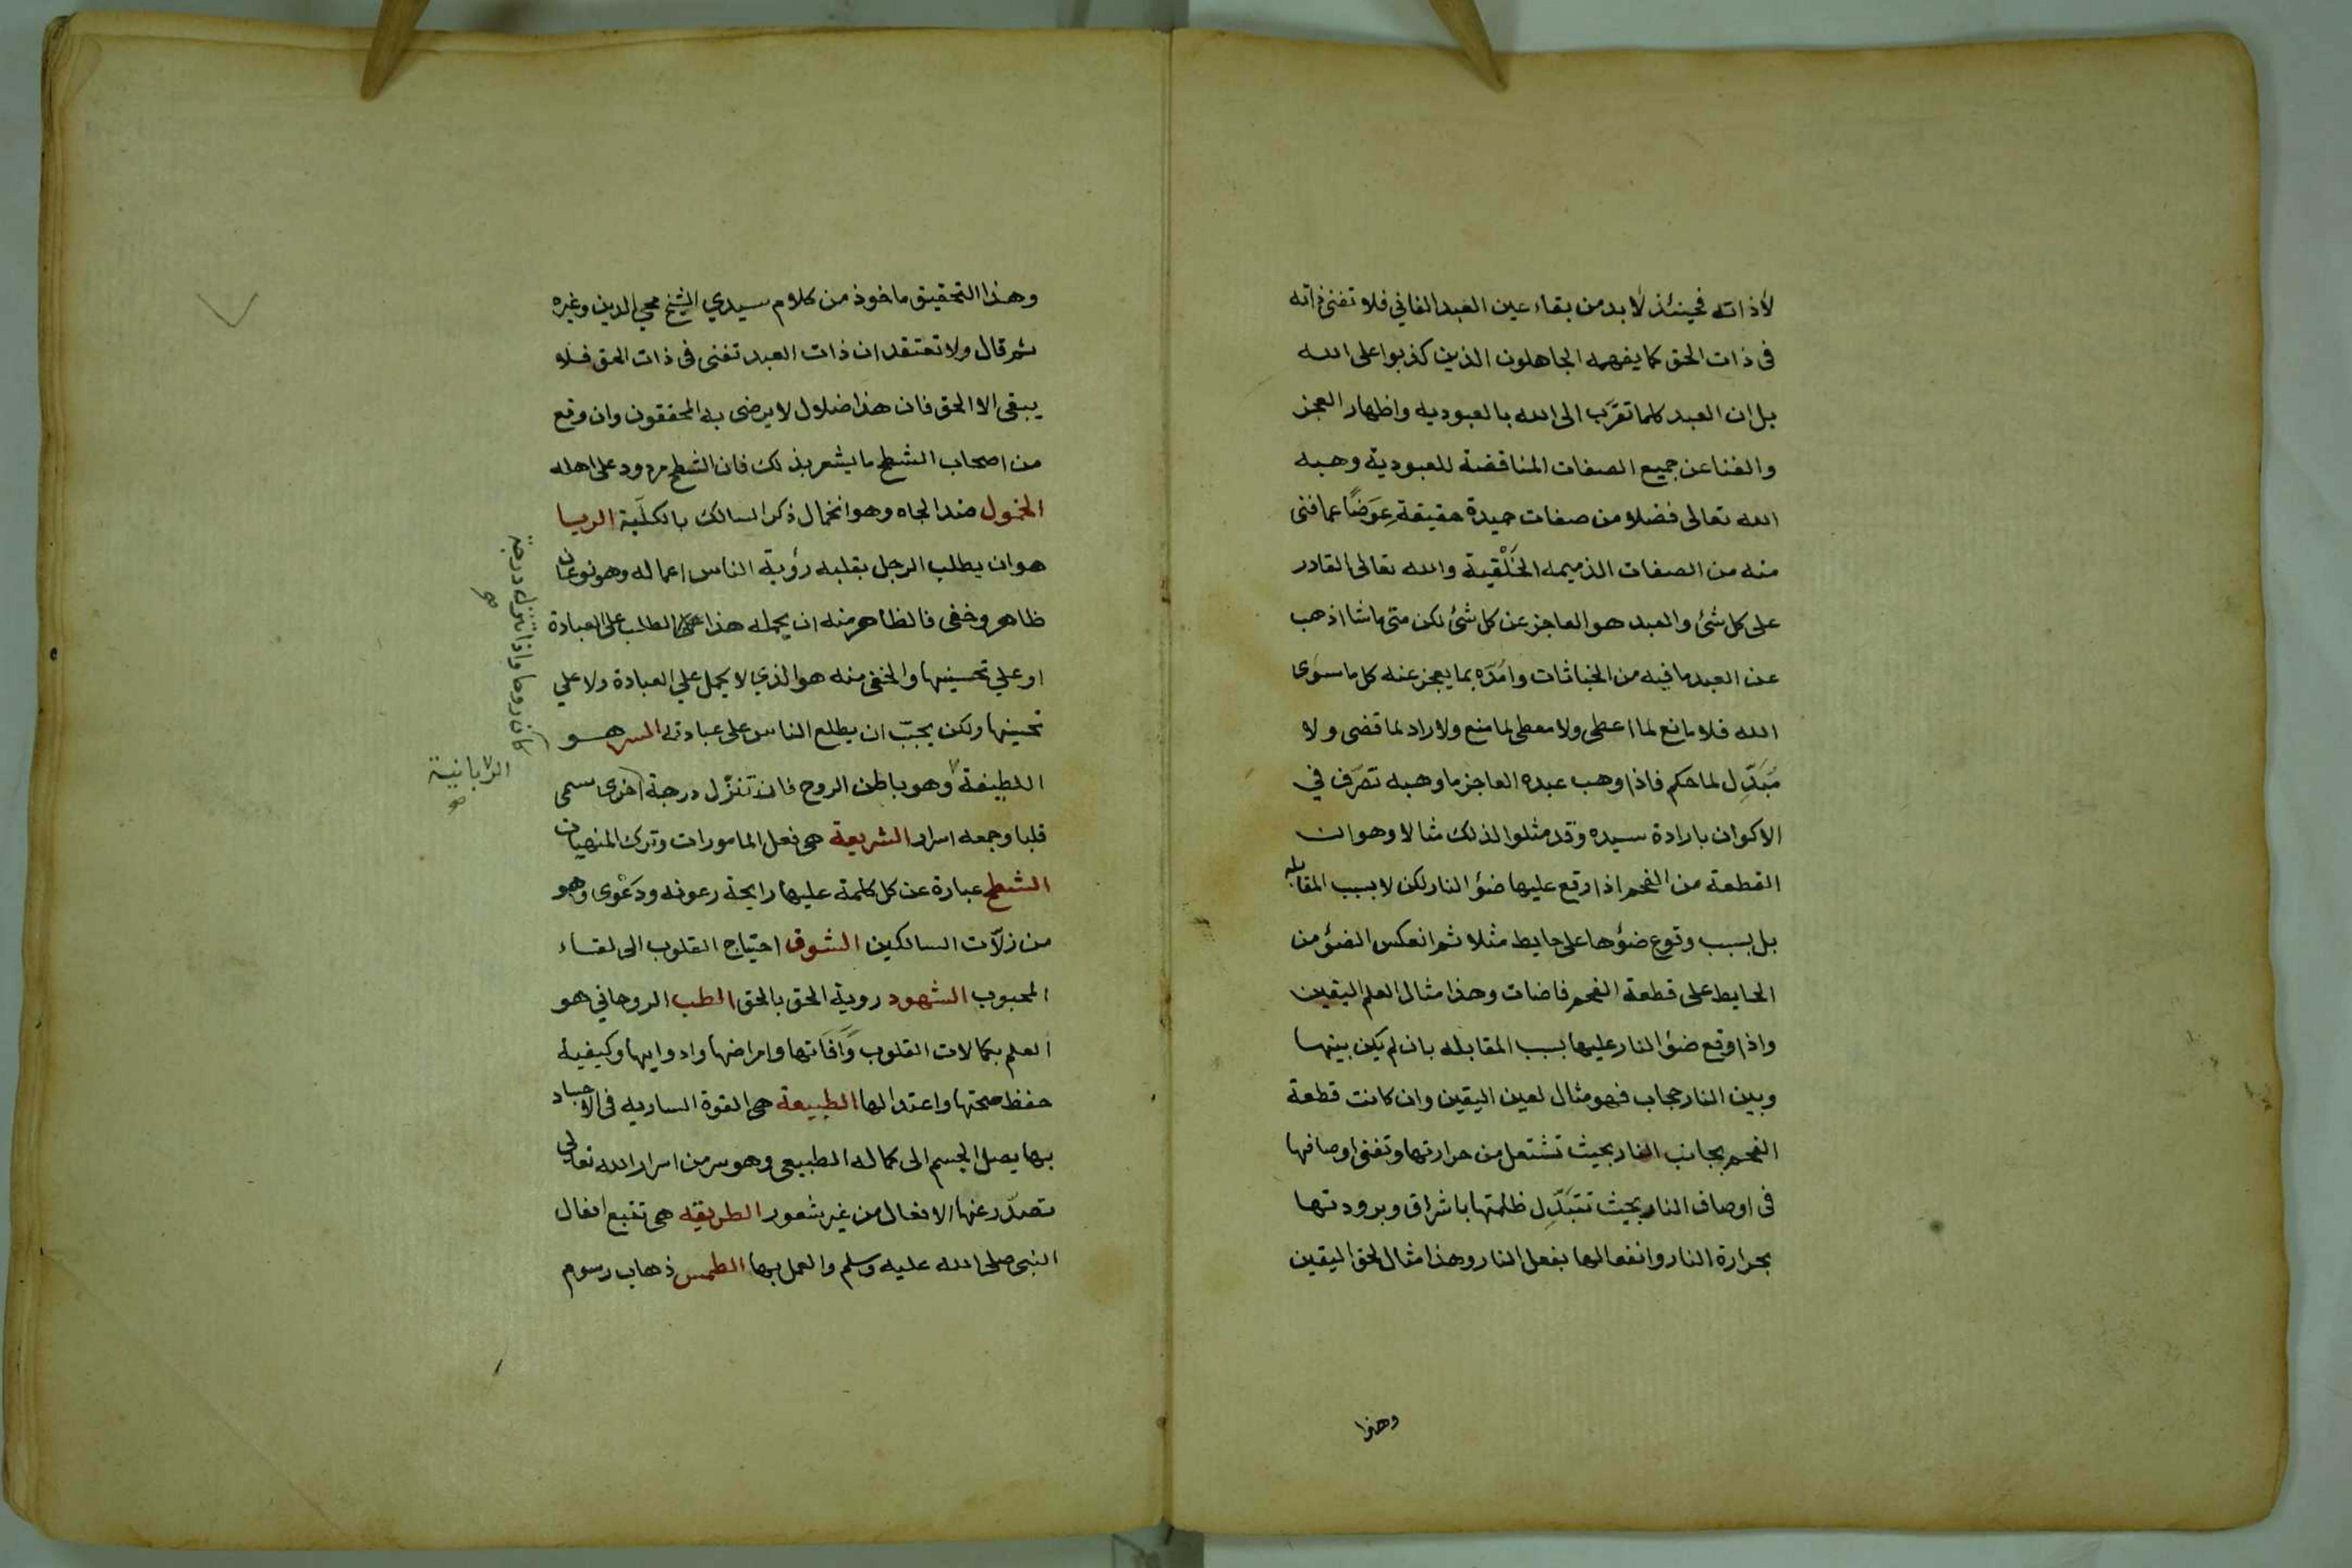 لا ذاته فحينئذ لا بد من بقاء عين العبد الفاني فلا تفنى ذاته
فى ذات الحق كما يفهمه الجاهلون الذين كذبوا على الله
بل ان العبد كلما تقرّب الى الله بالعبوديه واظهار العجز
والفنا عن جميع الصفات المناقضة للعبودية وهبه
الله تعالى فضلا من صفات حميدة حقيقة عِوَضًا عما فنى
منه من الصفات الذميمه الخَلْقية والله تعالى القادر
على كل شئ والعبد هو العاجز عن كل شئ لكن متى ما شا اذهب
عن العبد ما فيه من الخباثات وامَدّه بما يعجز عنه كل ما سوى
الله فلا مانع لما اعطى ولا معطى لما منع ولا راد لما قضى ولا
مُبَدِّل لما حكم فاذا وهب عبده العاجز ما وهبه تصرّف في
الاكوان بارادة سيده وقد مثلوا لذلك مثالا وهو ان
القطعة من الفحم اذا وقع عليها ضؤ النار لكن لا بسبب المقابله
بل بسبب وقوع ضؤها على حايط مثلا ثم انعكس الضؤ من
الحايط على قطعة الفحم فاضات وهذا مثال العلم اليقين
واذا وقع ضؤ النار عليها بسبب المقابله بان لم يكن بينها
وبين النار حجاب فهو مثال لعين اليقين وان كانت قطعة
الفحم بجانب النار بحيث تشتعل من حرارتها وتفنى اوصافها
فى اوصاف النار بحيث تتبَدِّل ظلمتها باشراق وبرودتها
بحرارة النار وانفعالها بفعل النار وهذا مثال لحق اليقين
وهذا
وهذا التحقيق ماخوذ من كلام سيدي الشيخ محيي الدين وغيره
ثم قال ولا تعتقد ان ذات العبد تفنى فى ذات الحق فلا
يبقى الا الحق فان هذا ضلال لا يرضى به المحققون وان وقع
من اصحاب الشطح ما يشعر بذلك فان الشطح مردود على اهله
الخمول ضد الجاه وهو انخمال ذكر السالك بالكلّية الريا
هو ان يطلب الرجل بقلبه رؤية الناس اعماله وهو نوعان
ظاهر وخفى فالظاهر منه ان يحمله هذا الطلب على العبادة
او علي تحسينها والخفى منه هو الذي لا يحمل علي العبادة ولا علي
تحسينها ولكن يحبّ ان يطلع الناس على عبادته السر هو
اللطيفة وهو باطن الروح فان تنزّل درجة اخرى سمى
قلبا وجمعه اسرار الشريعة هى فعل المامورات وترك المنهيات
الشطح عبارة عن كل كلمة عليها رايحة رعونه ودَعْوى وهو
من زلّات السالكين الشوق احتياج القلوب الى لقاء
المحبوب الشهود روية الحق بالحق الطب الروحاني هو
العلم بكمالات القلوب وآفاتها وامراضها وادوايها وكيفية
حفظ صحتها واعتدالها الطبيعة هى القوة الساريه فى الاجساد
بها يصل الجسم الى كماله الطبيعى وهو سر من اسرار الله تعالى
تصدّر عنها الافعال من غير شعور الطريقه هى تتبع افعال
النبى صلى الله عليه وسلم والعمل بها الطمس ذهاب رسوم
كان روحا واذا تنزل درجة
صح
الربانية
صح